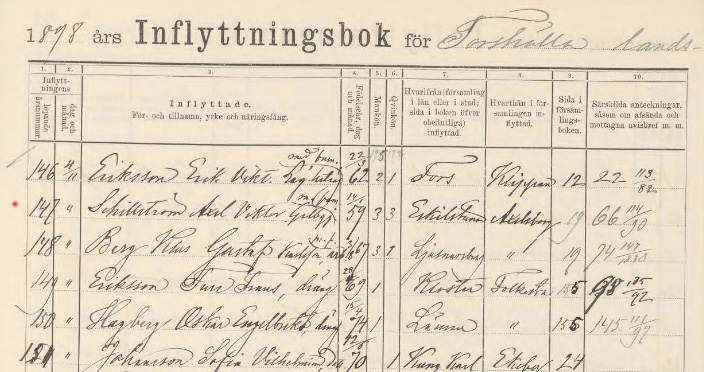 1898 års Inflyttningsbok för Torshälla lands-
1. 2. 3. 4. 5. 6. 7. 8. 9. 10.
Inflytt-
ningens
löpande
årsnummer.
dag och
månad.
Inflyttade.
För- och tillnamn, yrke och näringsfång.
Födelseår, dag
och månad.
Mankön.
Qvinkön.
Hvarifrån (församling
i län eller i stad;
sida i boken öfver
obefintliga)
inflyttad.
Hvarthän i för-
samlingen in-
flyttad.
Sida i
försam-
lings-
boken.
Särskilda anteckningar,
såsom om afsända och
mottagna avisbref m. m.
146 Eriksson Erik Vikt. 62 2 1 Fors Klippan 12 22 113/82
147 " Schillström Axel Viktor 59 3 3 Eskilstuna Axelsborg 19 66 114/90
148 " Berg Klas Gustaf 67 3 1 " 19 74
149 " Eriksson Ture Frans, dräng 69 1 Kloster Folkesta 155 98 135/92
150 " Hagberg Oskar Engelbrekt, dräng 74 1 Länna " 155 145 111/97
151 " Johansson Sofia Vilhelmina 70 1 Kung Karl Ekeby 24